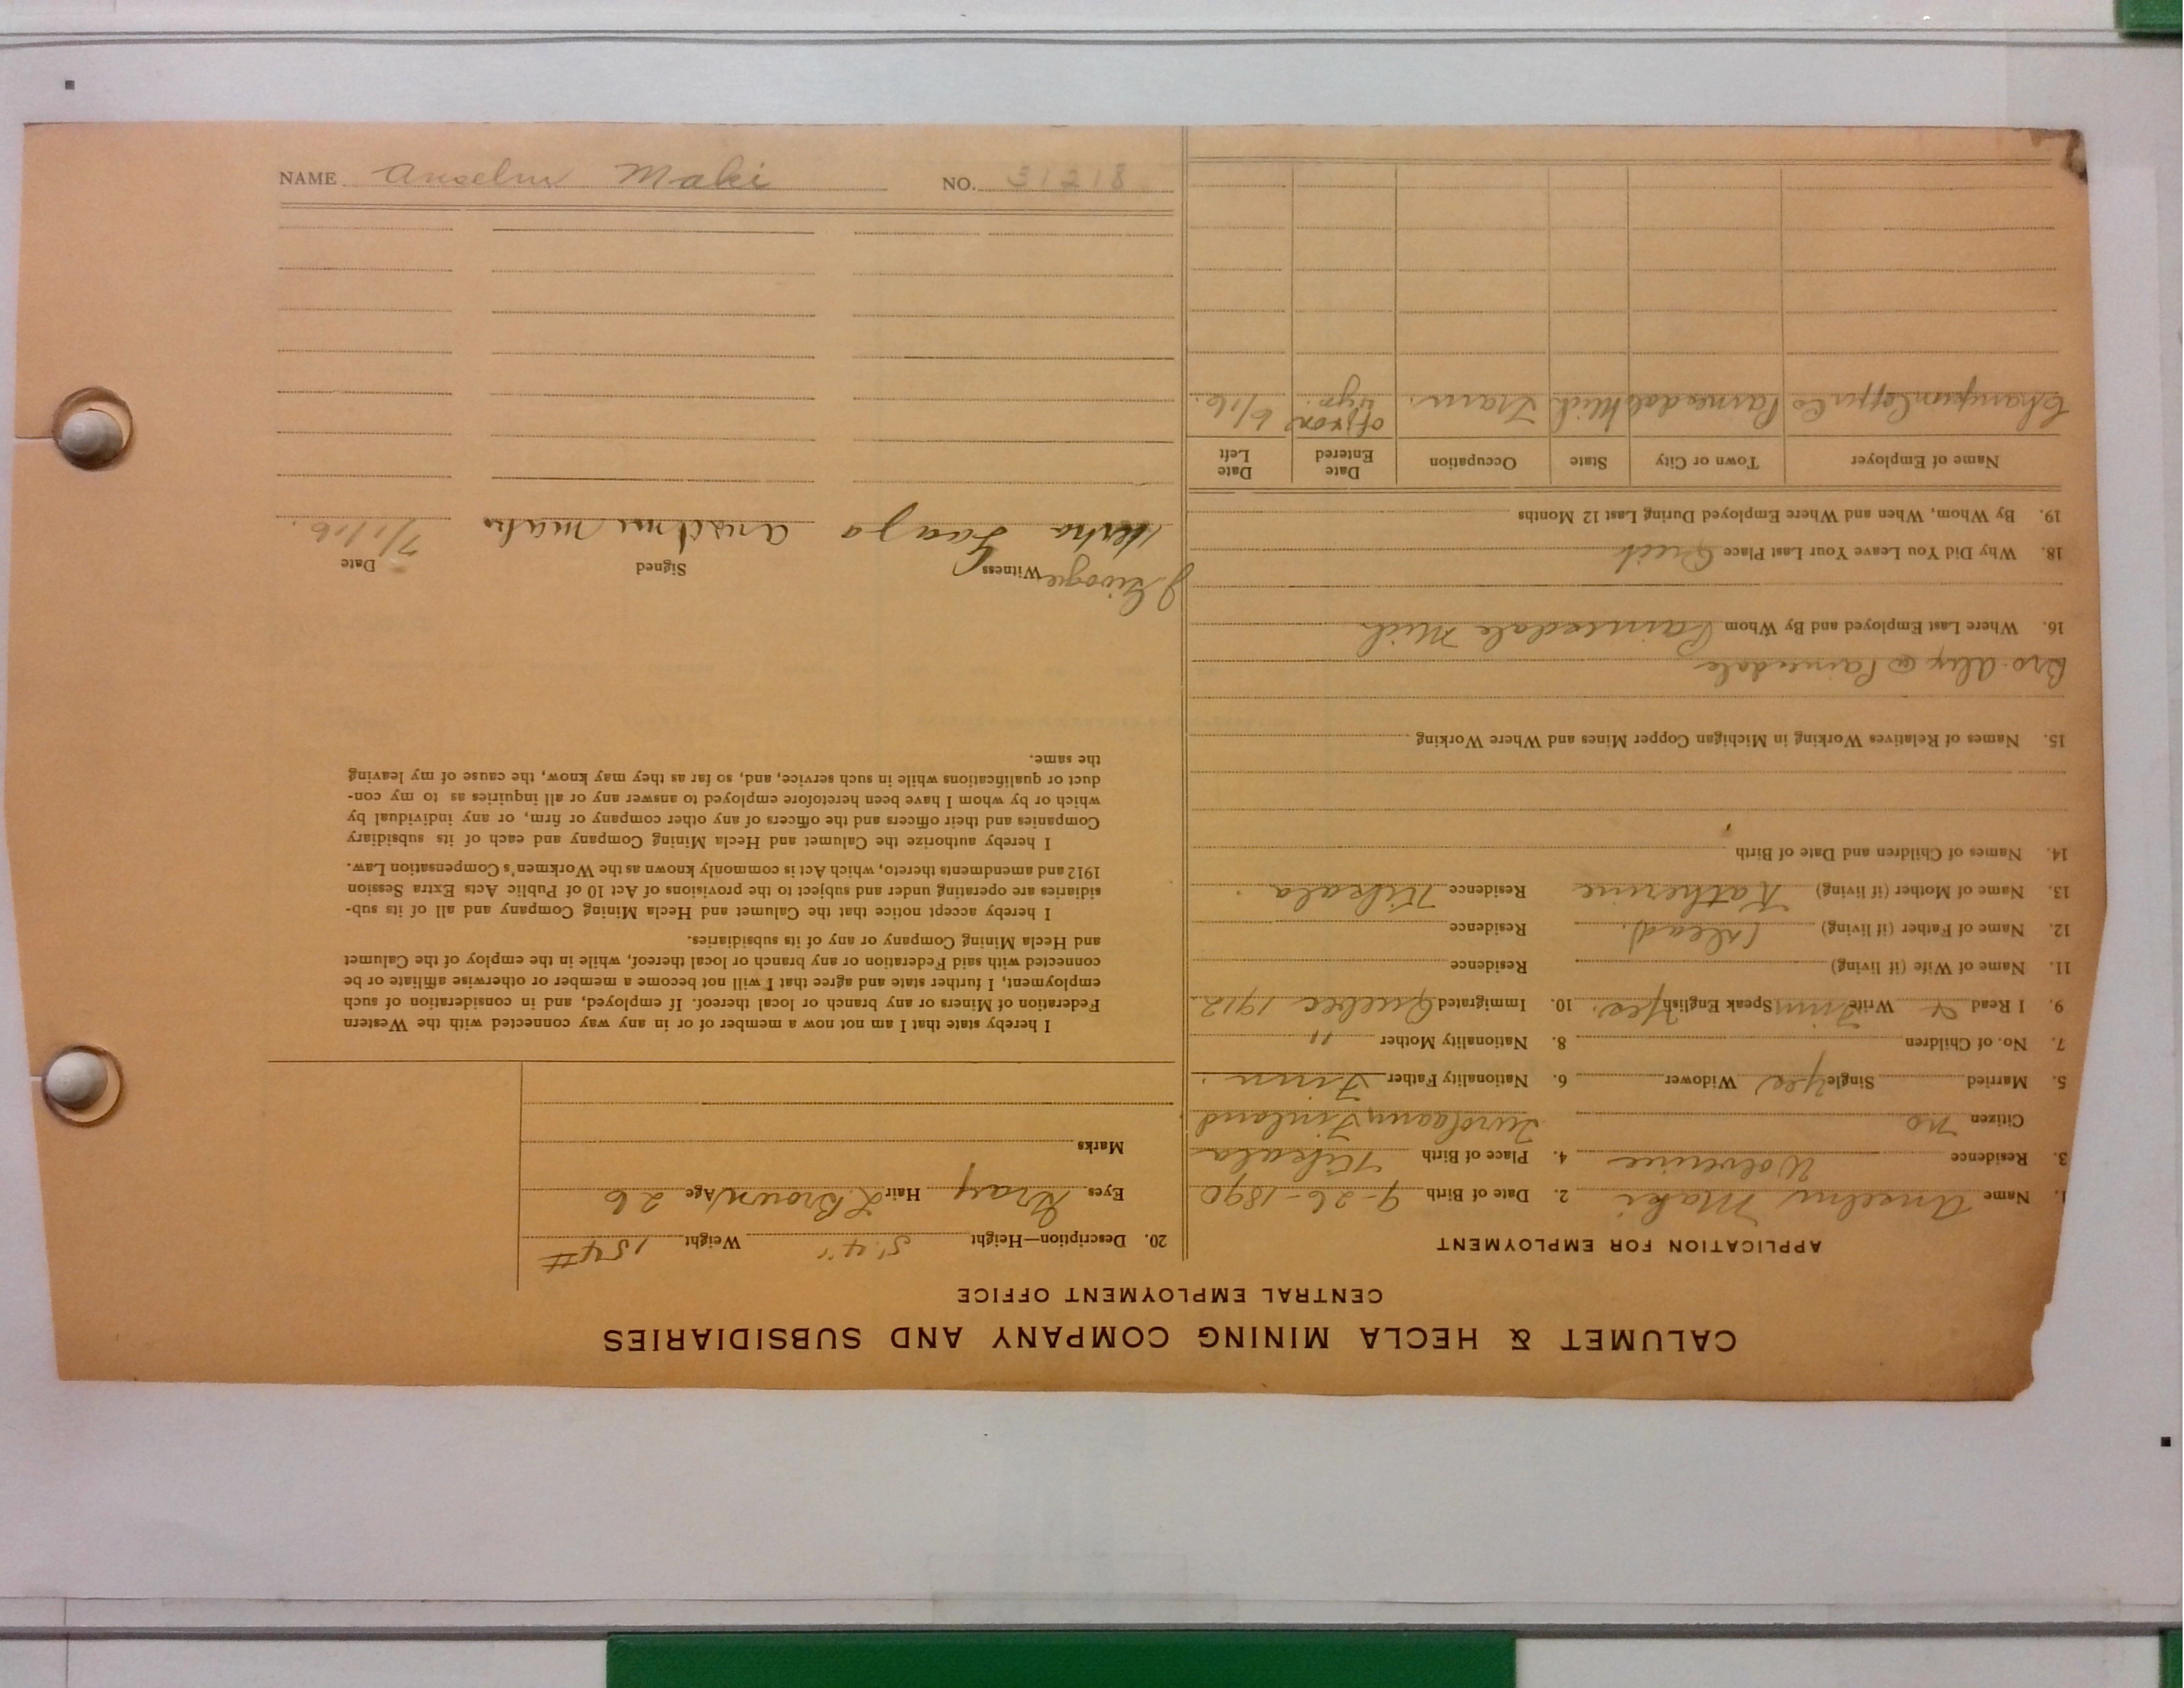 CALUMET & HECLA MINING COMPANY AND SUBSIDIARIES
CENTRAL EMPLOYMENT OFFICE
APPLICATION FOR EMPLOYMENT
1. Name Anselm Maki 2. Date of Birth 9-26-1890
3. Residence Wolverine 4. Place of Birth Kikala
Citizen no Finland
5. Married Single Yes Widower 6. Nationality Father Finn
7. No. of Children 8. Nationality Mother "
9. I Read & Write Finn Speak English Yes. 10. Immigrated Quebec 1912
11. Name of Wife (if living) Residence
12. Name of Father (if living) (dead) Residence
13. Name of Mother (if living) Katherine Residence Kikala
14. Names of Children and Date of Birth
15. Names of Relatives Working in Michigan Copper Mines and Where Working
Bro. Alex @ Painesdale
16. Where Last Employed and By Whom Painesdale Mich
18. Why Did You Leave Your Last Place Quit
19. By Whom, When and Where Employed During Last 12 Months
Name of Employer Town or City State Occupation Date Entered Date Left
Champion Copper Co Painesdale Mich Tram. off & on 4 yr. 6/16.
20. Description—Height 5'.4" Weight 154#
Eyes Gray Hair L Brown Age 26
Marks
I hereby state that I am not now a member of or in any way connected with the Western
Federation of Miners or any branch or local thereof. If employed, and in consideration of such
employment, I further state and agree that I will not become a member or otherwise affiliate or be
connected with said Federation or any branch or local thereof, while in the employ of the Calumet
and Hecla Mining Company or any of its subsidiaries.
I hereby accept notice that the Calumet and Hecla Mining Company and all of its sub-
sidiaries are operating under and subject to the provisions of Act 10 of Public Acts Extra Session
1912 and amendments thereto, which Act is commonly known as the Workmen's Compensation Law.
I hereby authorize the Calumet and Hecla Mining Company and each of its subsidiary
Companies and their officers and the officers of any other company or firm, or any individual by
which or by whom I have been heretofore employed to answer any or all inquiries as to my con-
duct or qualifications while in such service, and, so far as they may know, the cause of my leaving
the same.
Witness Signed Date
7/1/16.
NAME Anselm Maki NO. 31218